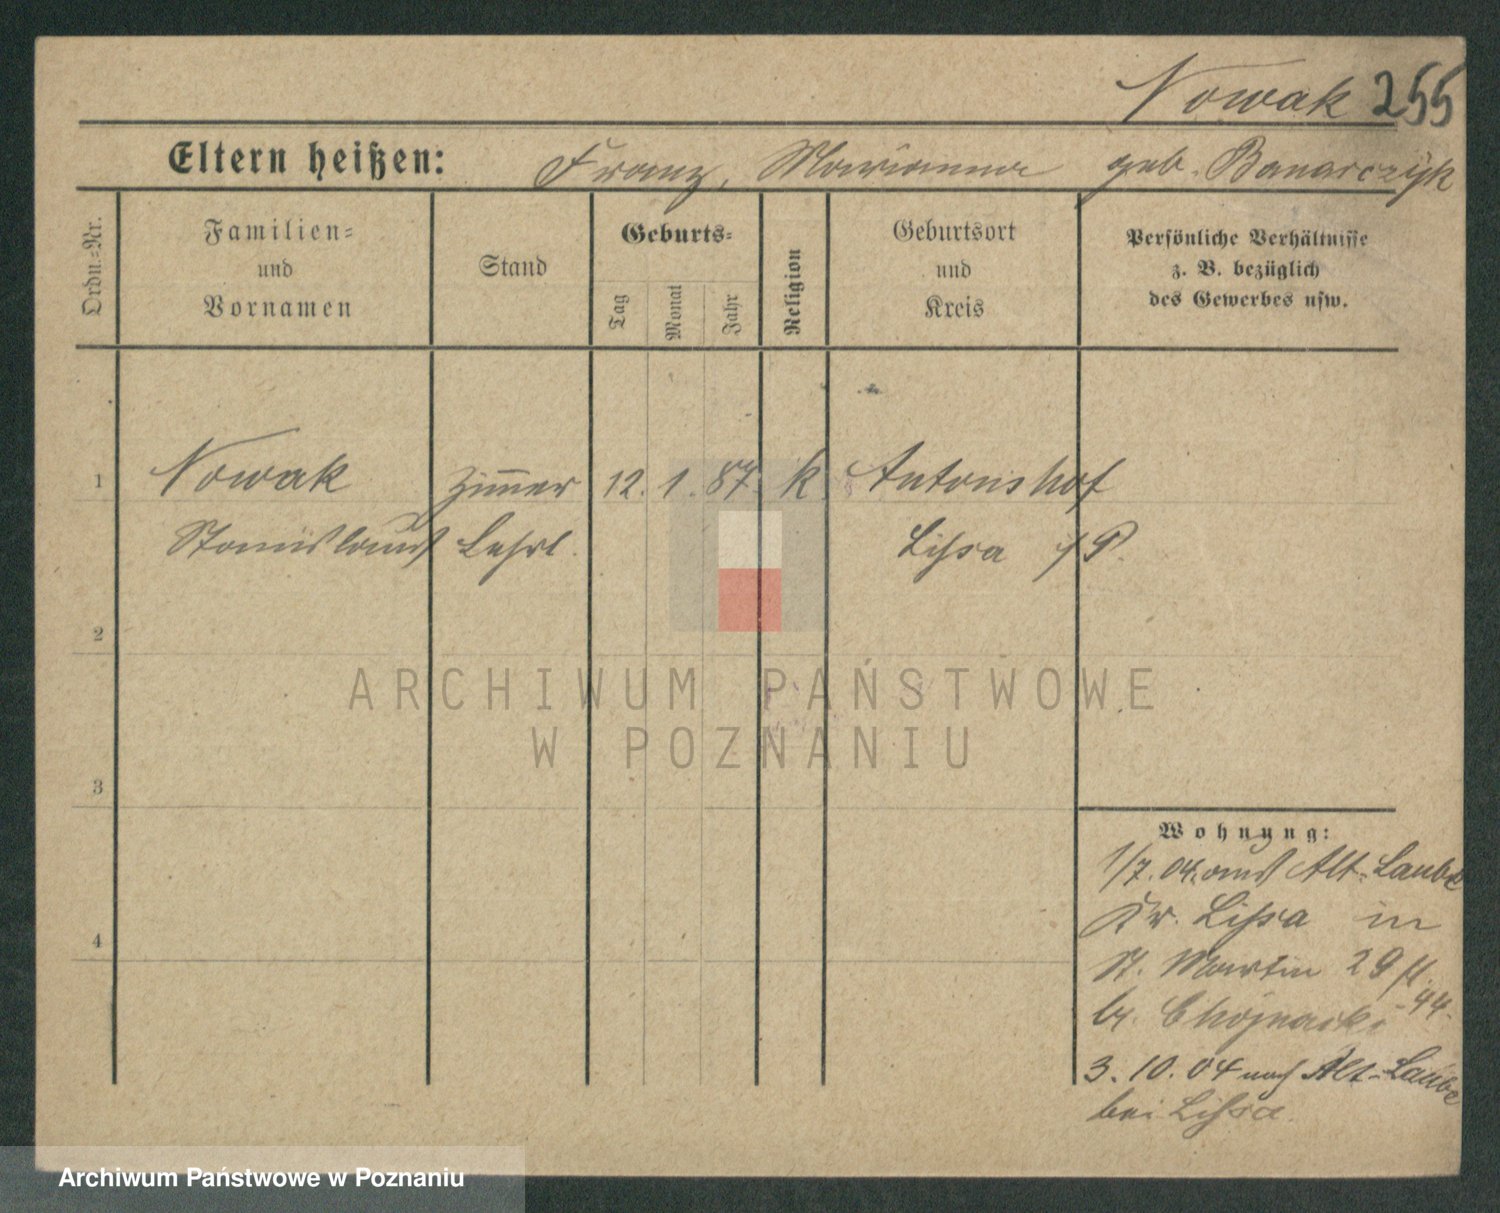 Nowak 255
Eltern heißen: Franz, Marianna geb. Banarczyk
Ordn.-Nr.
Familien-
und
Vornamen
Stand
Geburts-
Tag
Monat
Jahr
Religion
Geburtsort
und
Kreis
Persönliche Verhältnisse
z. B. bezüglich
des Gewerbes usw.
1 Nowak Zim̅er 12. 1. 87. k. Antonshof
Stanislaus Lehrl. Lissa i/P.
2
3
4
Wohnung:
1/7. 04. aus Alt-Laube
Kr. Lissa in
St. Martin 29
b/. Chojnacki -44.
3. 10. 04 nach Alt-Laube
bei Lissa.
ARCHIWUM PAŃSTWOWE
W POZNANIU
Archiwum Państwowe w Poznaniu